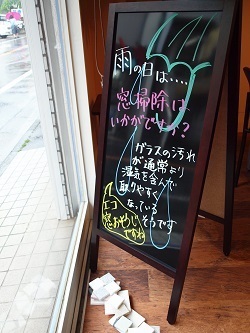 雨の日は‥‥
窓掃除は
いかがですか?
ガラスの汚れ
が通常より
湿気を含んで
取りやすく
なっている
そうです
エコ
窓おそうじ
ですね